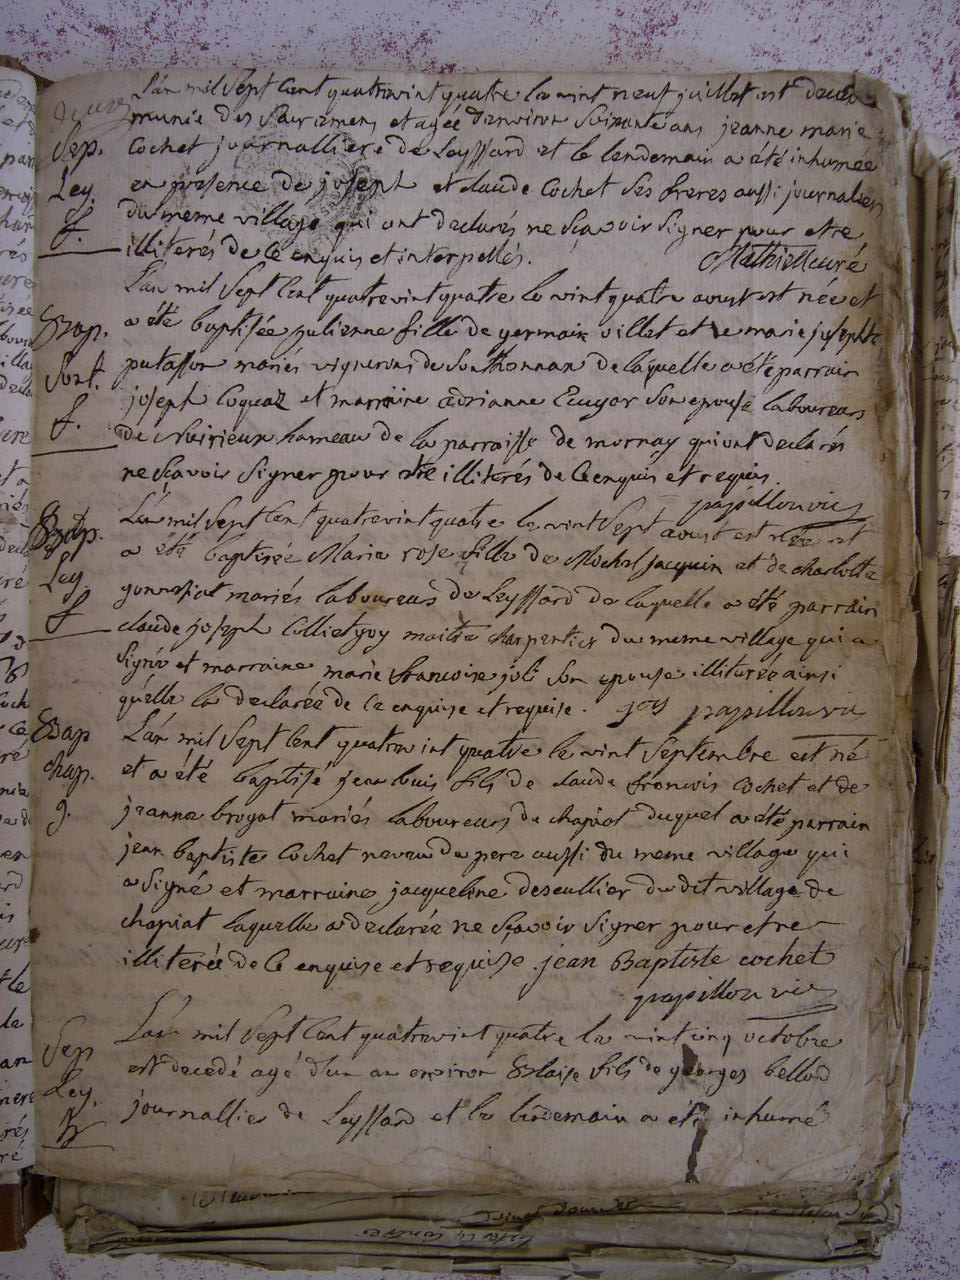 L'an mil Sept Cent quatrevint quatre le vint neuf juillet est decedée
munie des Sacremens et agée d'environ Soixante ans jeanne marie
Sep. Cochet journalliere de Leyssard et le lendemain a été inhumée
Ley. en presence de joseph et claude Cochet Ses freres aussi journaliers
f. du meme village qui ont declarés ne Sçavoir Signer pour etre
illiterés de ce enquis et interpellés.
L'an mil Sept Cent quatrevint quatre le vint quatre aoust est née et
Bap. a été baptisée julienne fille de germain villet et de marie josephte
Sont. putasson mariés vignerons de Sonthonnan de laquelle a été parrain
f. joseph Coquaz et marraine adrianne Son epouse laboureurs
de hameau de la parraisse de mornay qui ont declarés
ne Sçavoir Signer pour etre illiterés de ce enquis et requis.
papillon vic
Bap. L'an mil Sept Cent quatrevint quatre le vint Sept aoust est née et
a été baptisée Marie rose fille de Michel jacquin et de charlotte
Ley. mariés laboureurs de Leyssard de laquelle a été parrain
f claude joseph maitre charpentier du meme village qui a
Signé et marraine marie francoise joli Son epouse illiterée ainsi
qu'elle l'a declarée de ce enquise et requise. papillon vic
Bap L'an mil Sept Cent quatrevint quatre le vint Septembre est né
chap. et a été baptisé jean louis fils de claude francois Cochet et de
g. jeanne broyat mariés laboureurs de chapiat duquel a été parrain
jean baptiste Cochet neveu du pere aussi du meme village qui
a Signé et marraine jacqueline descullier du dit village de
chapiat laquelle a declarée ne Sçavoir Signer pour etre
illiterée de ce enquise et requise. jean Baptiste cochet
papillon vic
Sep L'an mil Sept Cent quatrevint quatre le vint cinq octobre
Ley. est decedé agé d'un an environ Blaise fils de georges bellod
journallier de Leyssard et le lendemain a été inhumé